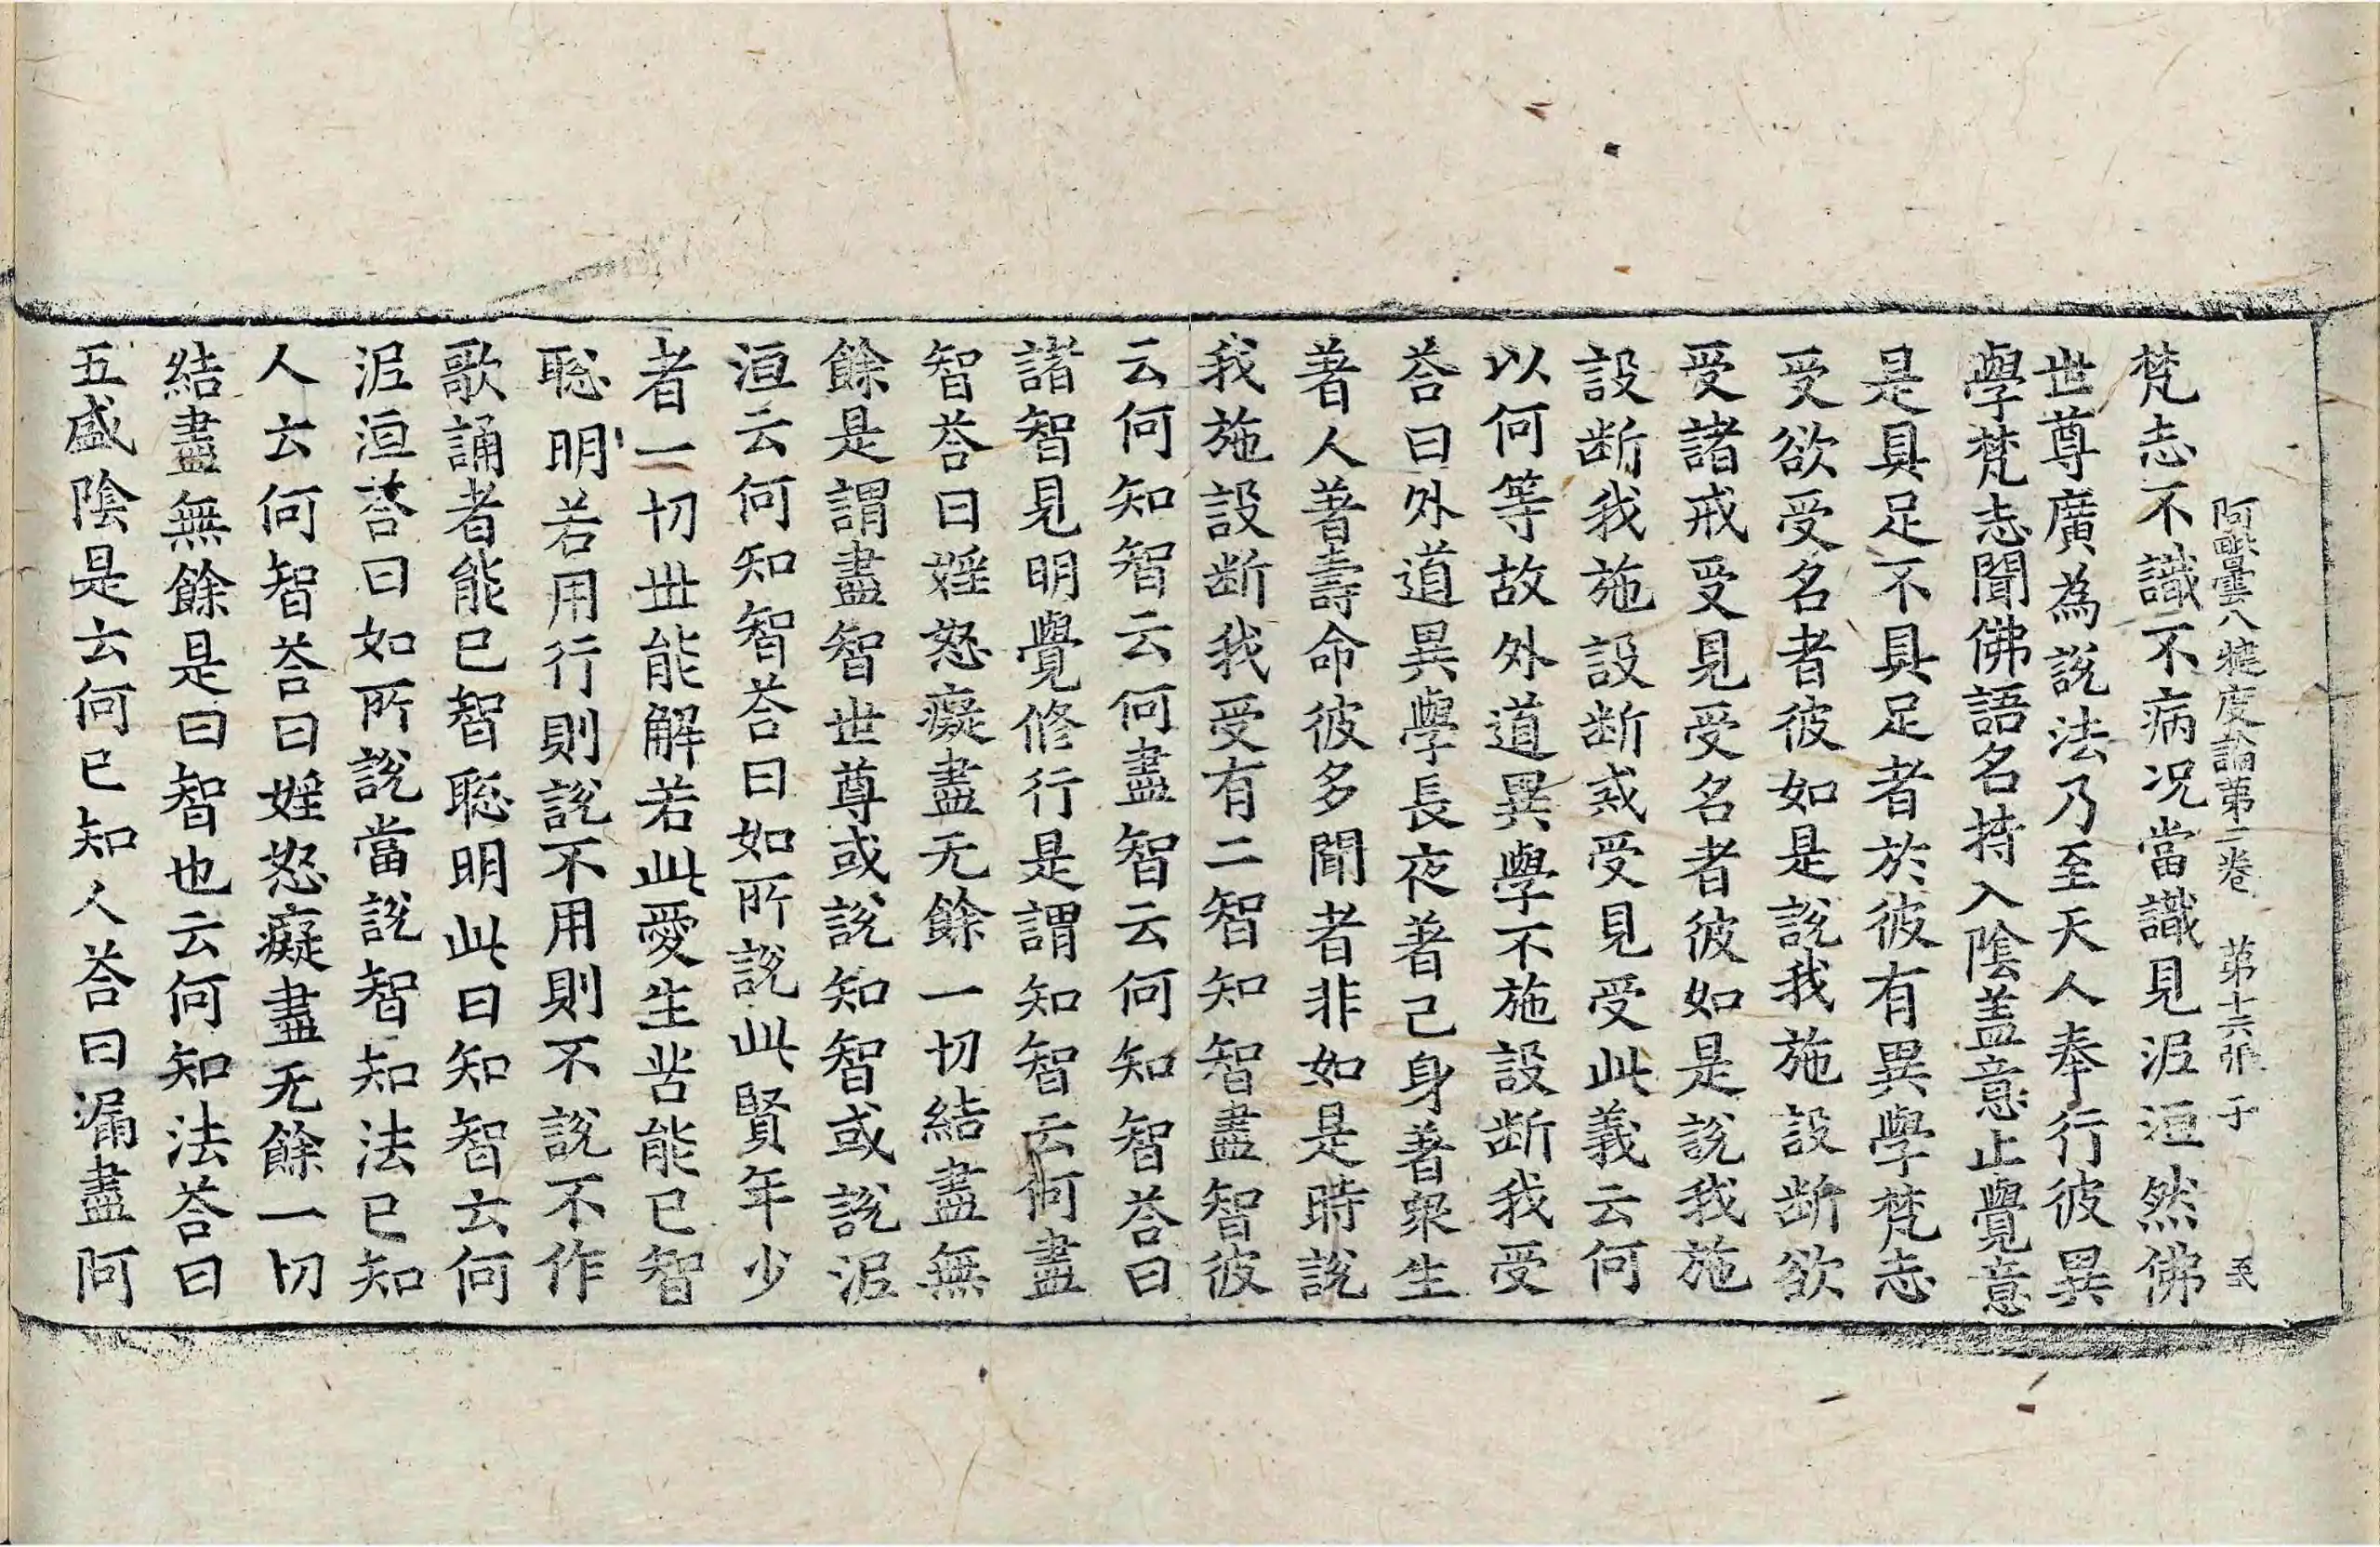 阿毗曇八犍度論第二卷　第十六張　于
梵志不識不病况當識見泥洹然佛
世尊廣為說法乃至天人奉行彼異
學梵志聞佛語名持入陰盖意止覺意
是具足不具足者於彼有異學梵志
受欲受名者彼如是說我施設断欲
受諸戒受見受名者彼如是說我施
設断我施設断或受見受此義云何
以何等故外道異學不施設断我受
荅曰外道異學長夜著己身著衆生
著人著壽命彼多聞者非如是時說
我施設断我受有二智知智盡智彼
云何知智云何盡智云何知智荅曰
諸智見明覺修行是謂知智云何盡
智荅曰婬怒癡盡无餘一切結盡無
餘是謂盡智世尊或說知智或說泥
洹云何知智荅曰如所說此賢年少
者一切世能解若此愛生苦能已智
聡明若用行則說不用則不說不作
歌誦者能已智聡明此曰知智云何
泥洹荅曰如所說當說智知法已知
人云何智荅曰婬怒癡盡无餘一切
結盡無餘是曰智也云何知法荅曰
五盛陰是云何已知人荅曰漏盡阿